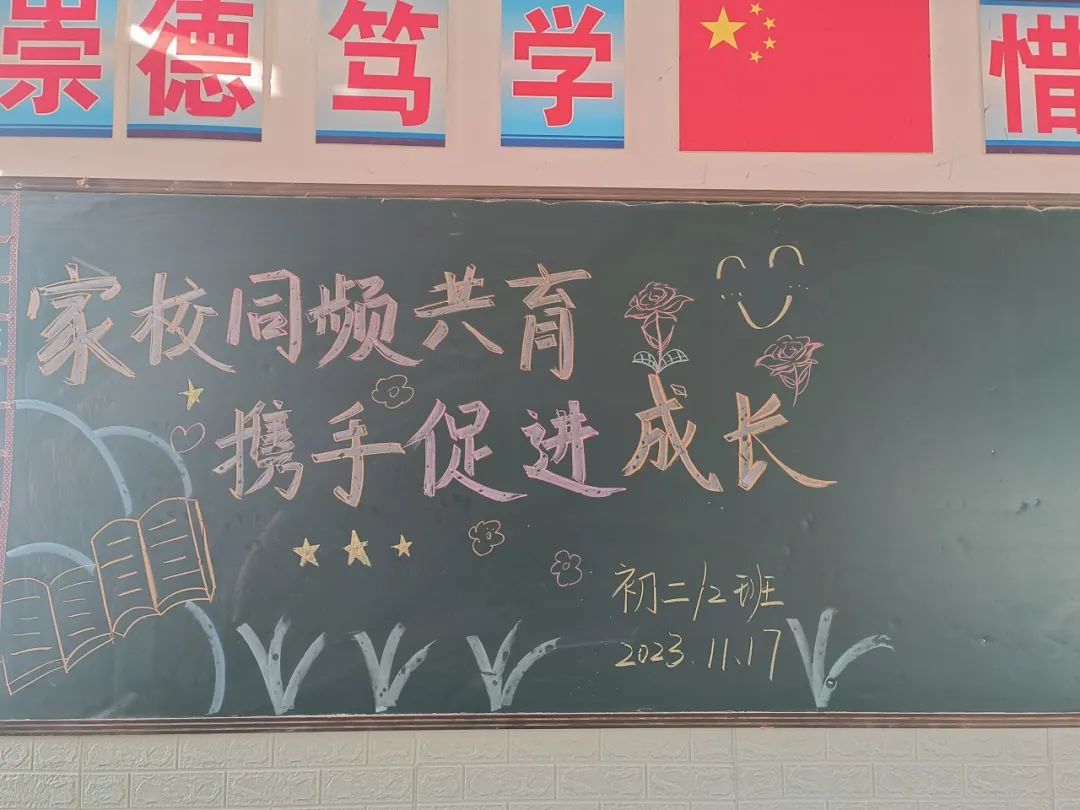 崇德笃学 惜
家校同频共育
携手促进成长
初二12班
2023.11.17